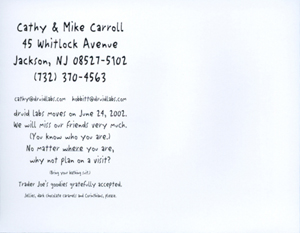 Cathy & Mike Carroll
45 Whitlock Avenue
Jackson, NJ 08527-5102
(732) 370-4563
cathy@druidlabs.com hobbitt@druidlabs.com
druid labs moves on June 24, 2002.
We will miss our friends very much.
(You know who you are.)
No matter where you are,
why not plan on a visit?
(Bring your bathing suit.)
Trader Joe's goodies gratefully accepted.
Jellies, dark chocolate caramels and Corinthians, please.